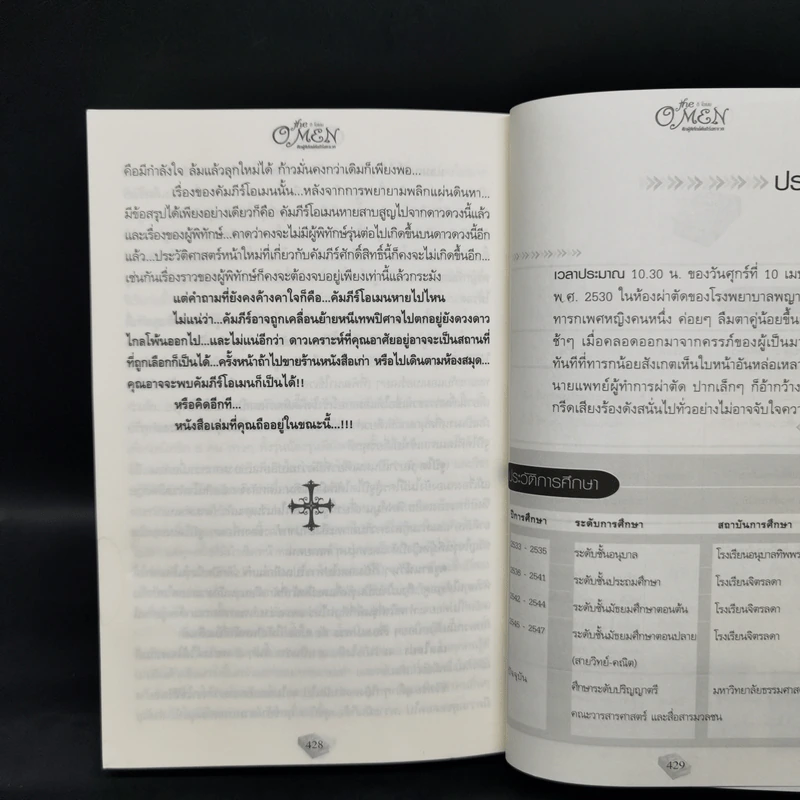 the
O'MEN
คือมีกำลังใจ ล้มแล้วลุกใหม่ได้ ก้าวมั่นคงกว่าเดิมก็เพียงพอ...
เรื่องของคัมภีร์โอเมนนั้น...หลังจากการพยายามพลิกแผ่นดินหา...
มีข้อสรุปได้เพียงอย่างเดียวก็คือ คัมภีร์โอเมนหายสาบสูญไปจากดาวดวงนี้แล้ว
และเรื่องของผู้พิทักษ์...คาดว่าคงจะไม่มีผู้พิทักษ์รุ่นต่อไปเกิดขึ้นบนดาวดวงนี้อีก
แล้ว...ประวัติศาสตร์หน้าใหม่ที่เกี่ยวกับคัมภีร์ศักดิ์สิทธิ์นี้ก็คงจะไม่เกิดขึ้นอีก...
เช่นกันเรื่องราวของผู้พิทักษ์ก็คงจะต้องจบอยู่เพียงเท่านี้แล้วกระมัง
แต่คำถามที่ยังคงค้างคาใจก็คือ...คัมภีร์โอเมนหายไปไหน
ไม่แน่ว่า...คัมภีร์อาจถูกเคลื่อนย้ายหนีเทพปีศาจไปตกอยู่ยังดวงดาว
ไกลโพ้นออกไป...และไม่แน่อีกว่า ดาวเคราะห์ที่คุณอาศัยอยู่อาจจะเป็นสถานที่
ที่ถูกเลือกก็เป็นได้...ครั้งหน้าถ้าไปขายร้านหนังสือเก่า หรือไปเดินตามห้องสมุด...
คุณอาจจะพบคัมภีร์โอเมนก็เป็นได้!!
หรือคิดอีกที...
หนังสือเล่มที่คุณถืออยู่ในขณะนี้...!!!
428
the
O'MEN
ปร
เวลาประมาณ 10.30 น. ของวันศุกร์ที่ 10 เมษ
พ.ศ. 2530 ในห้องผ่าตัดของโรงพยาบาลพญา
ทารกเพศหญิงคนหนึ่ง ค่อยๆ ลืมตาคู่น้อยขึ้น
ช้าๆ เมื่อคลอดออกมาจากครรภ์ของผู้เป็นมา
ทันทีที่ทารกน้อยสังเกตเห็นใบหน้าอันหล่อเหลา
นายแพทย์ผู้ทำการผ่าตัด ปากเล็กๆ ก็อ้ากว้าง
กรีดเสียงร้องดังสนั่นไปทั่วอย่างไม่อาจจับใจความ
ประวัติการศึกษา
ปีการศึกษา ระดับการศึกษา สถาบันการศึกษา
2533 - 2535 ระดับชั้นอนุบาล โรงเรียนอนุบาลทิพพร
2536 - 2541 ระดับชั้นประถมศึกษา โรงเรียนจิตรลดา
2542 - 2544 ระดับชั้นมัธยมศึกษาตอนต้น โรงเรียนจิตรลดา
2545 - 2547 ระดับชั้นมัธยมศึกษาตอนปลาย โรงเรียนจิตรลดา
(สายวิทย์-คณิต)
ปัจจุบัน ศึกษาระดับปริญญาตรี มหาวิทยาลัยธรรมศาส
คณะวารสารศาสตร์ และสื่อสารมวลชน
429